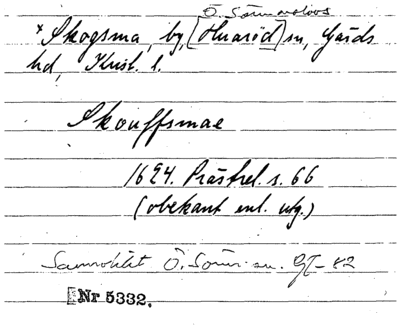 Ö. Sönnarslöv
*Skogsma, by, [Huaröd] sn, Gärds
hd, Krist. l.
Skouffsmae
1624. Prästrel. s. 66
(obekant enl. utg.)
Ö. Sönn. sn. -82
Nr 5332.